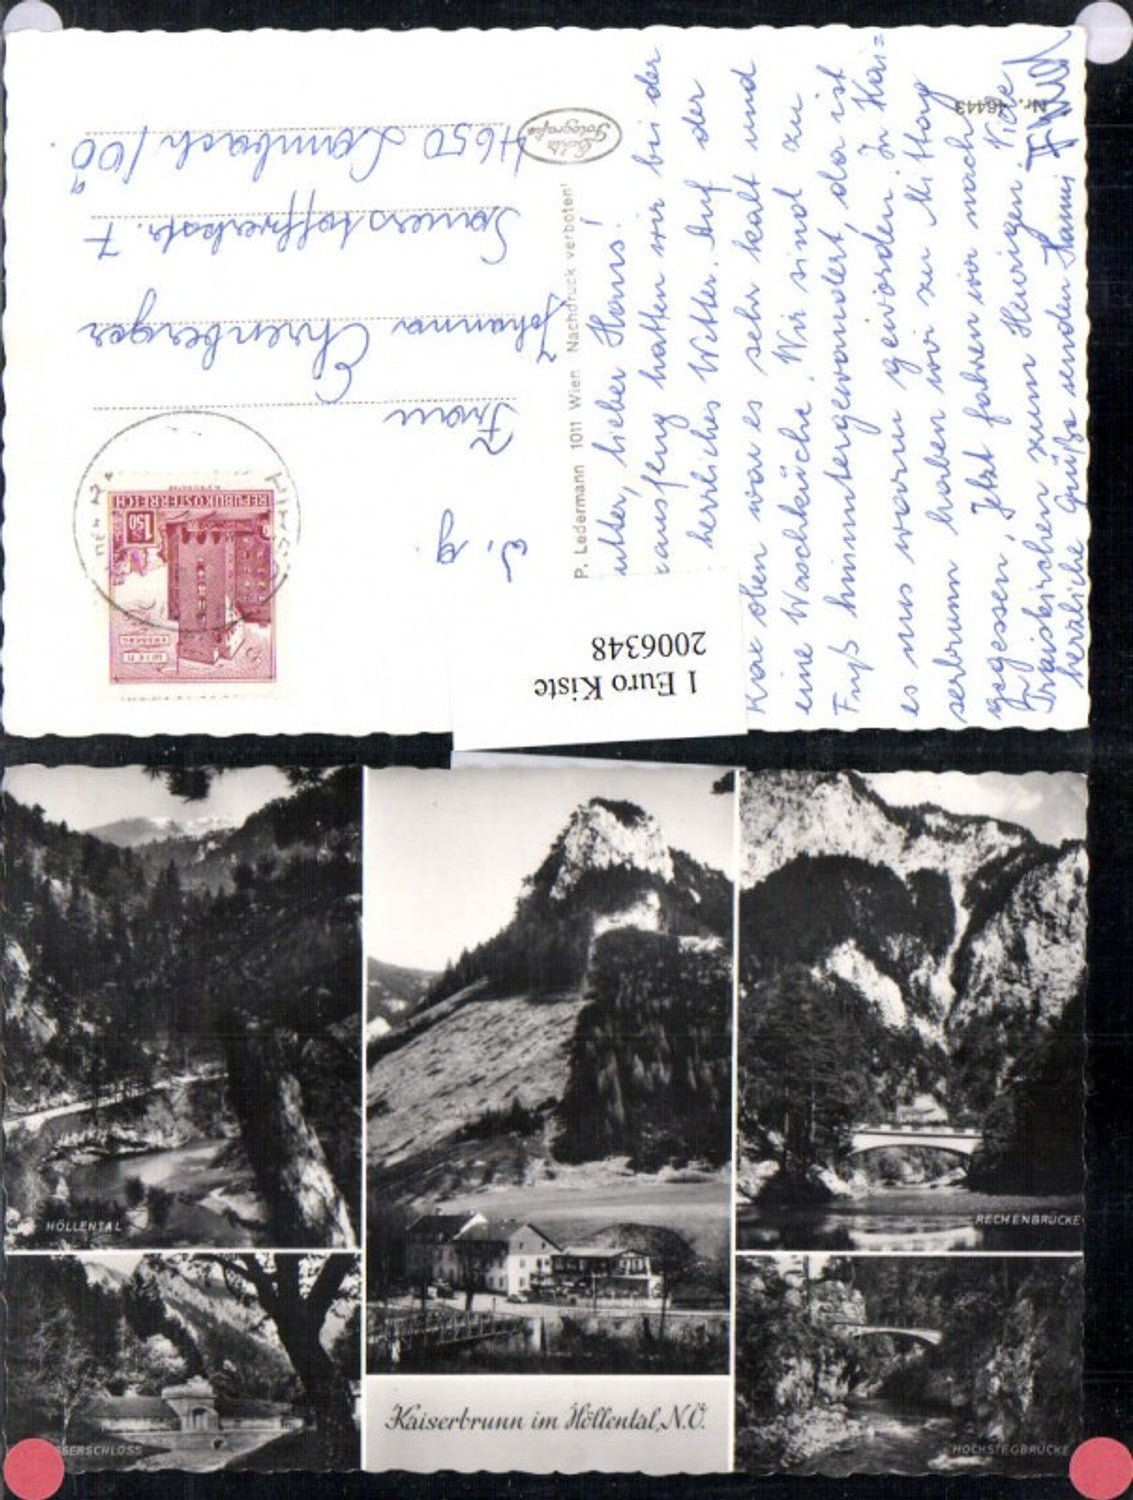 Nr. 46443
Echte
Fotografie
P. Ledermann 1011 Wien Nachdruck verboten!
utter, lieber Hans!
ausflug hatten wir bei der
herrliches Wetter. Auf der
Rax oben war es sehr kalt und
eine Waschküche. Wir sind zu
Fuß hinuntergewandert, da ist
es uns warm geworden. In Kai=
serbrunn haben wir zu Mittag
gegessen. Jetzt fahren wir nach
Traiskirchen zum Heurigen. Viele
herzliche Grüße senden Hanni
w. g.
Frau
Johanna Ehrenberger
Sauerstoffwerkstr. 7
4650 Lambach/OÖ.
REPUBLIK ÖSTERREICH
1.50
1 Euro Kiste
2006348
HÖLLENTAL
RECHENBRÜCKE
SERSCHLOSS
HOCHSTEGBRÜCKE
Kaiserbrunn im Höllental, N.Ö.